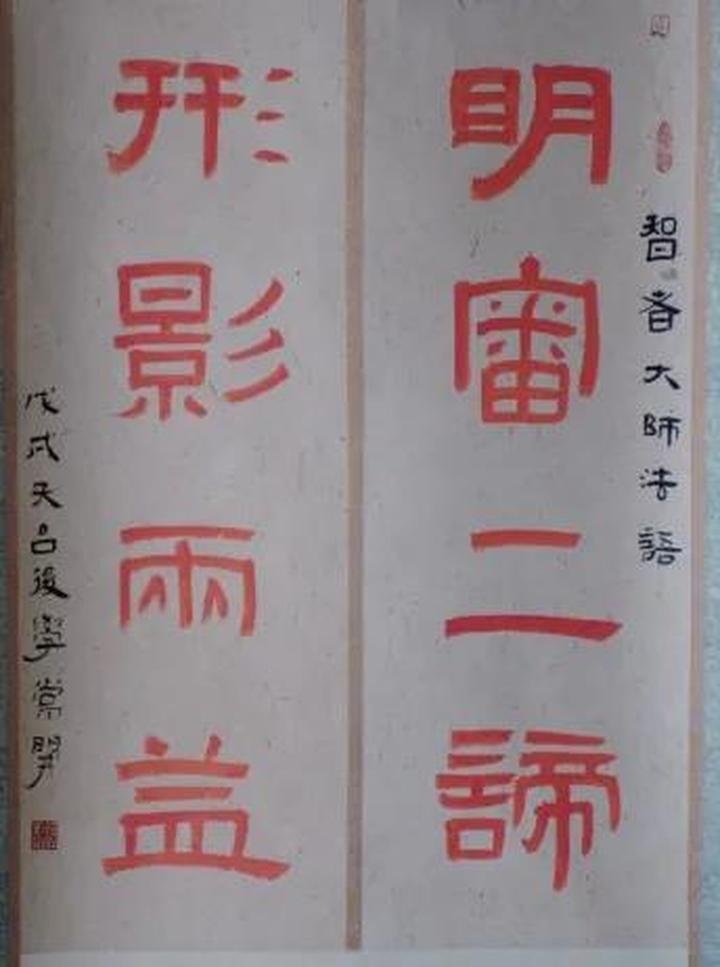 智者大师法語
明審二諦
形影兩益
戊戌天台後學常開